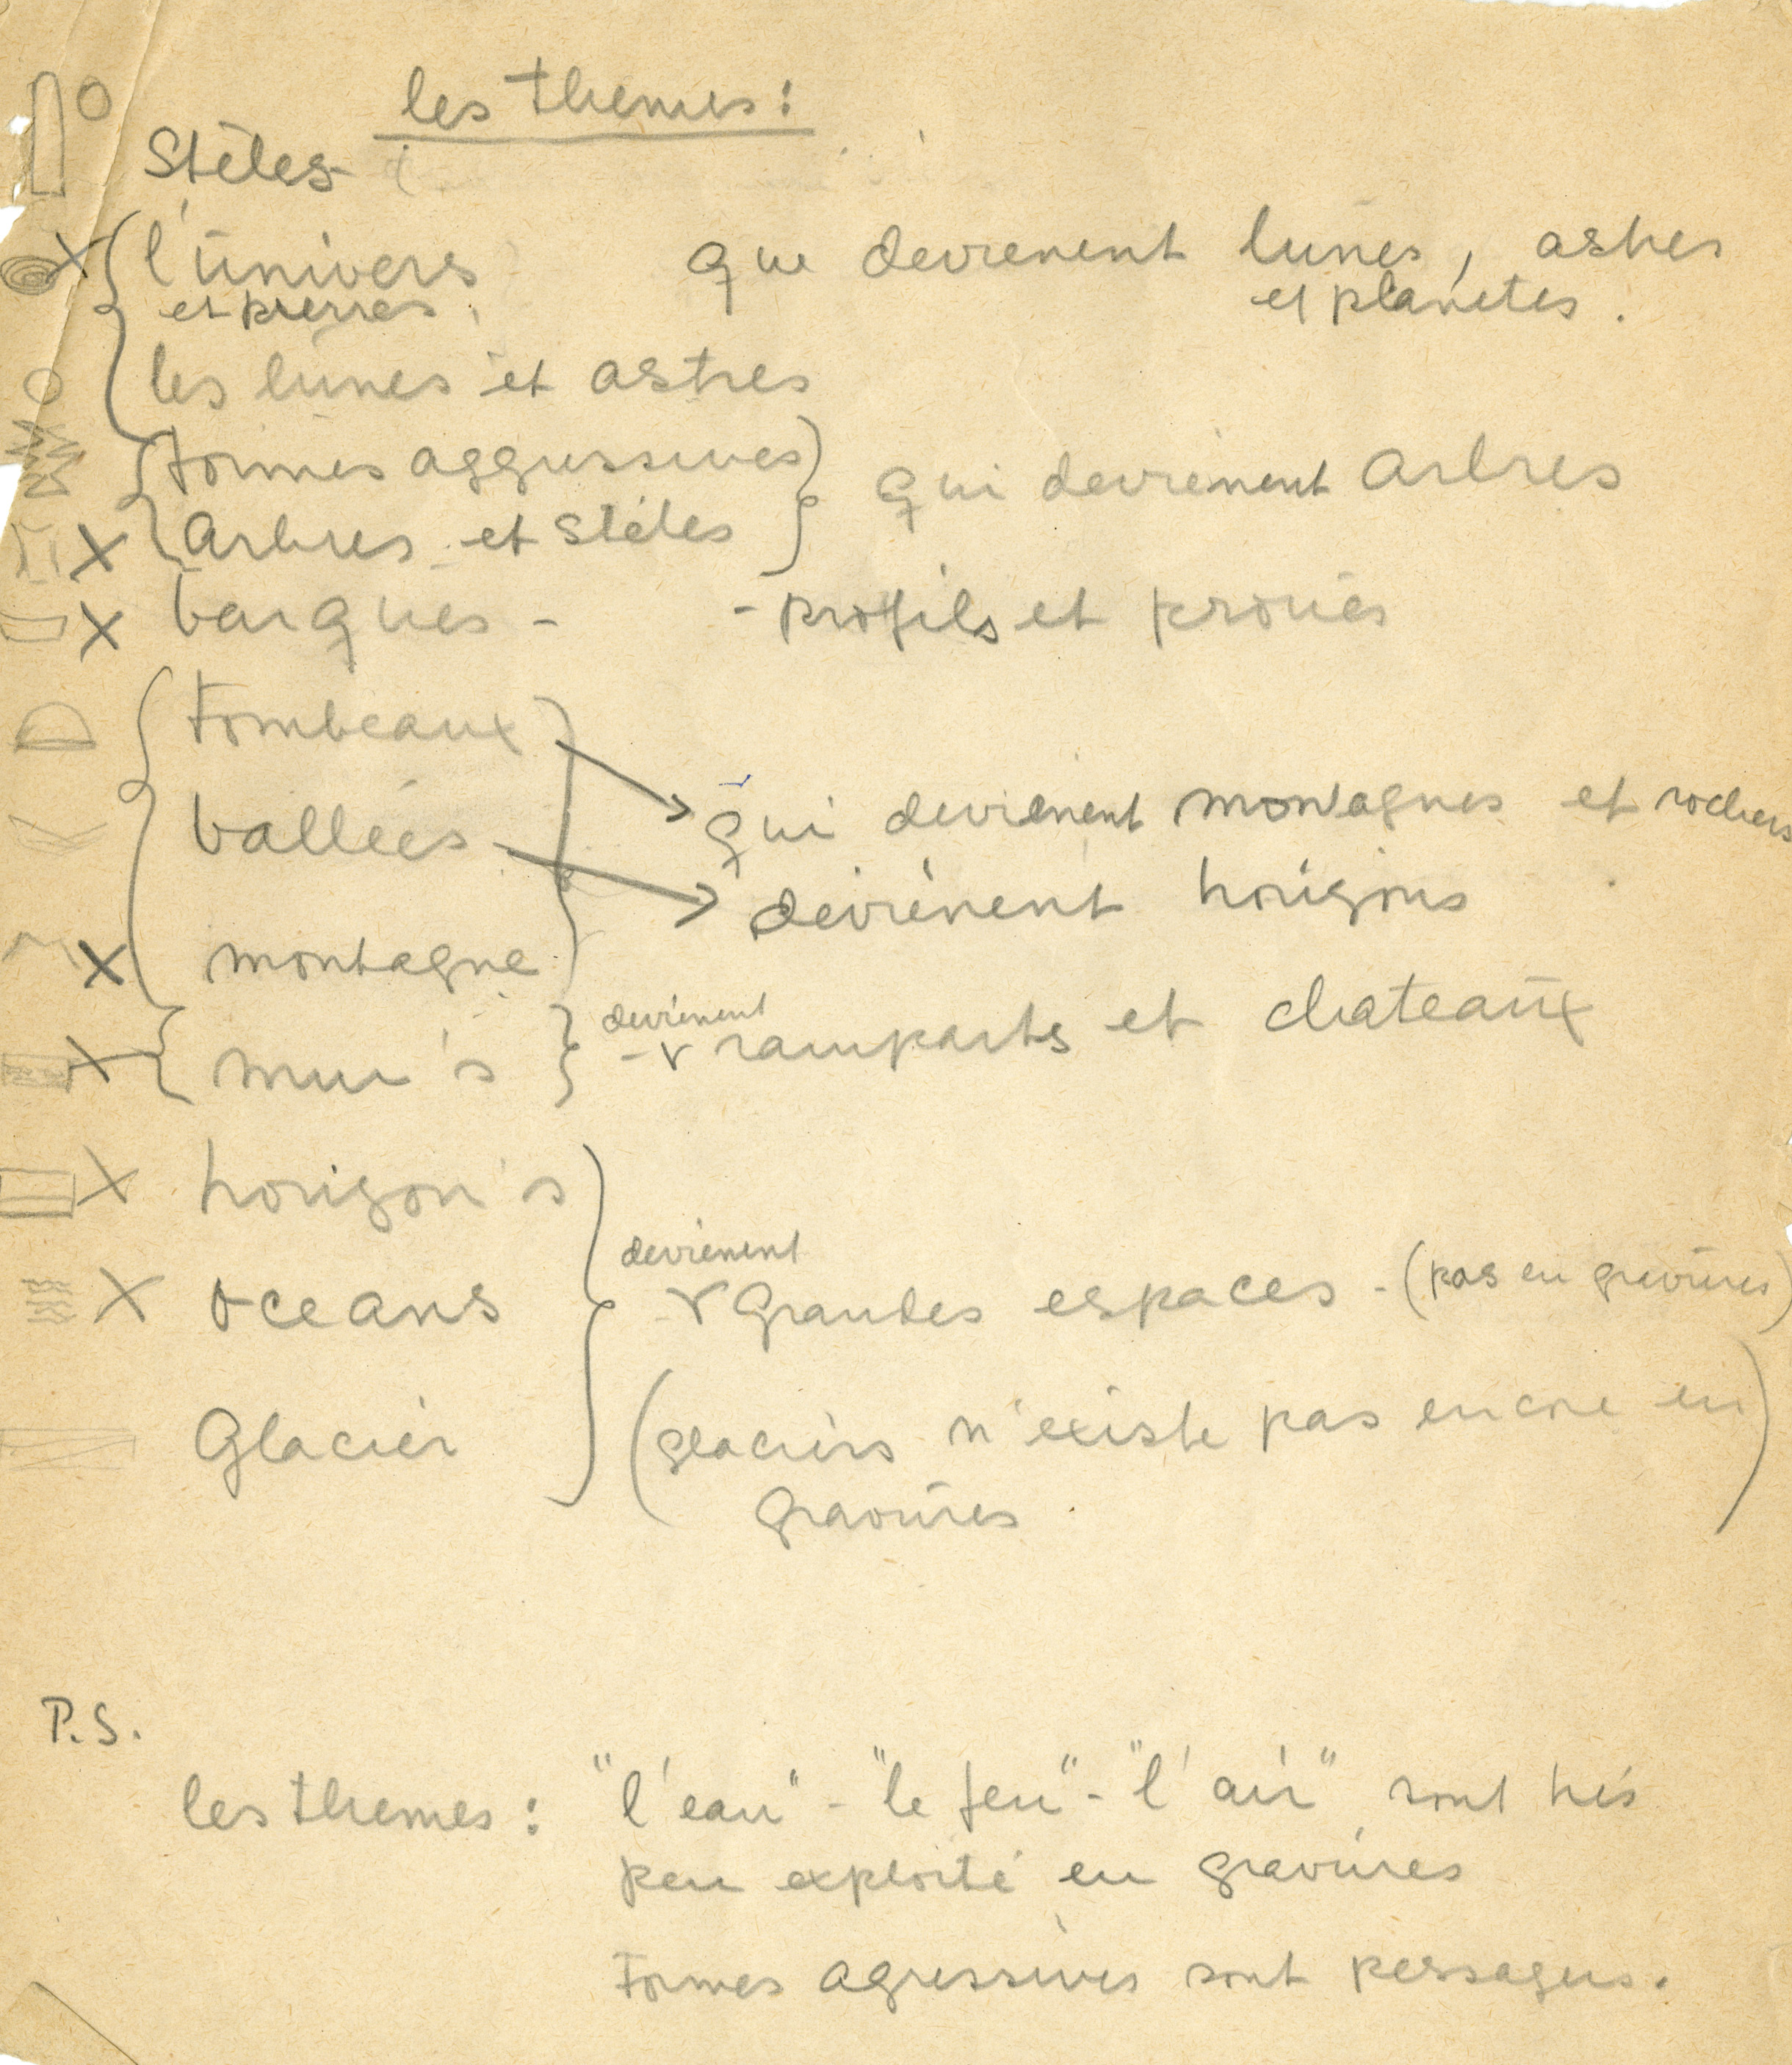 les themes :
Stèles -
l'univers que devienent lunes, astres
et pierres. et planetes.
les lunes et astres
formes aggressives
qui devienent arbres
arbres et stèles
barques - - profils et proues
tombeaux
qui devienent montagnes et rochers
vallées
devienent horizons
montagne
devienent
mur's ramparts et chateaux
horizon's
devienent
Grandes espaces - (pas en gravures)
oceans
Glacier (glaciers n'existe pas encore en
gravures)
P.S.
les themes : "l'eau" - "le feu" - "l'air" sont très
peu exploité en gravures
Formes agressives sont